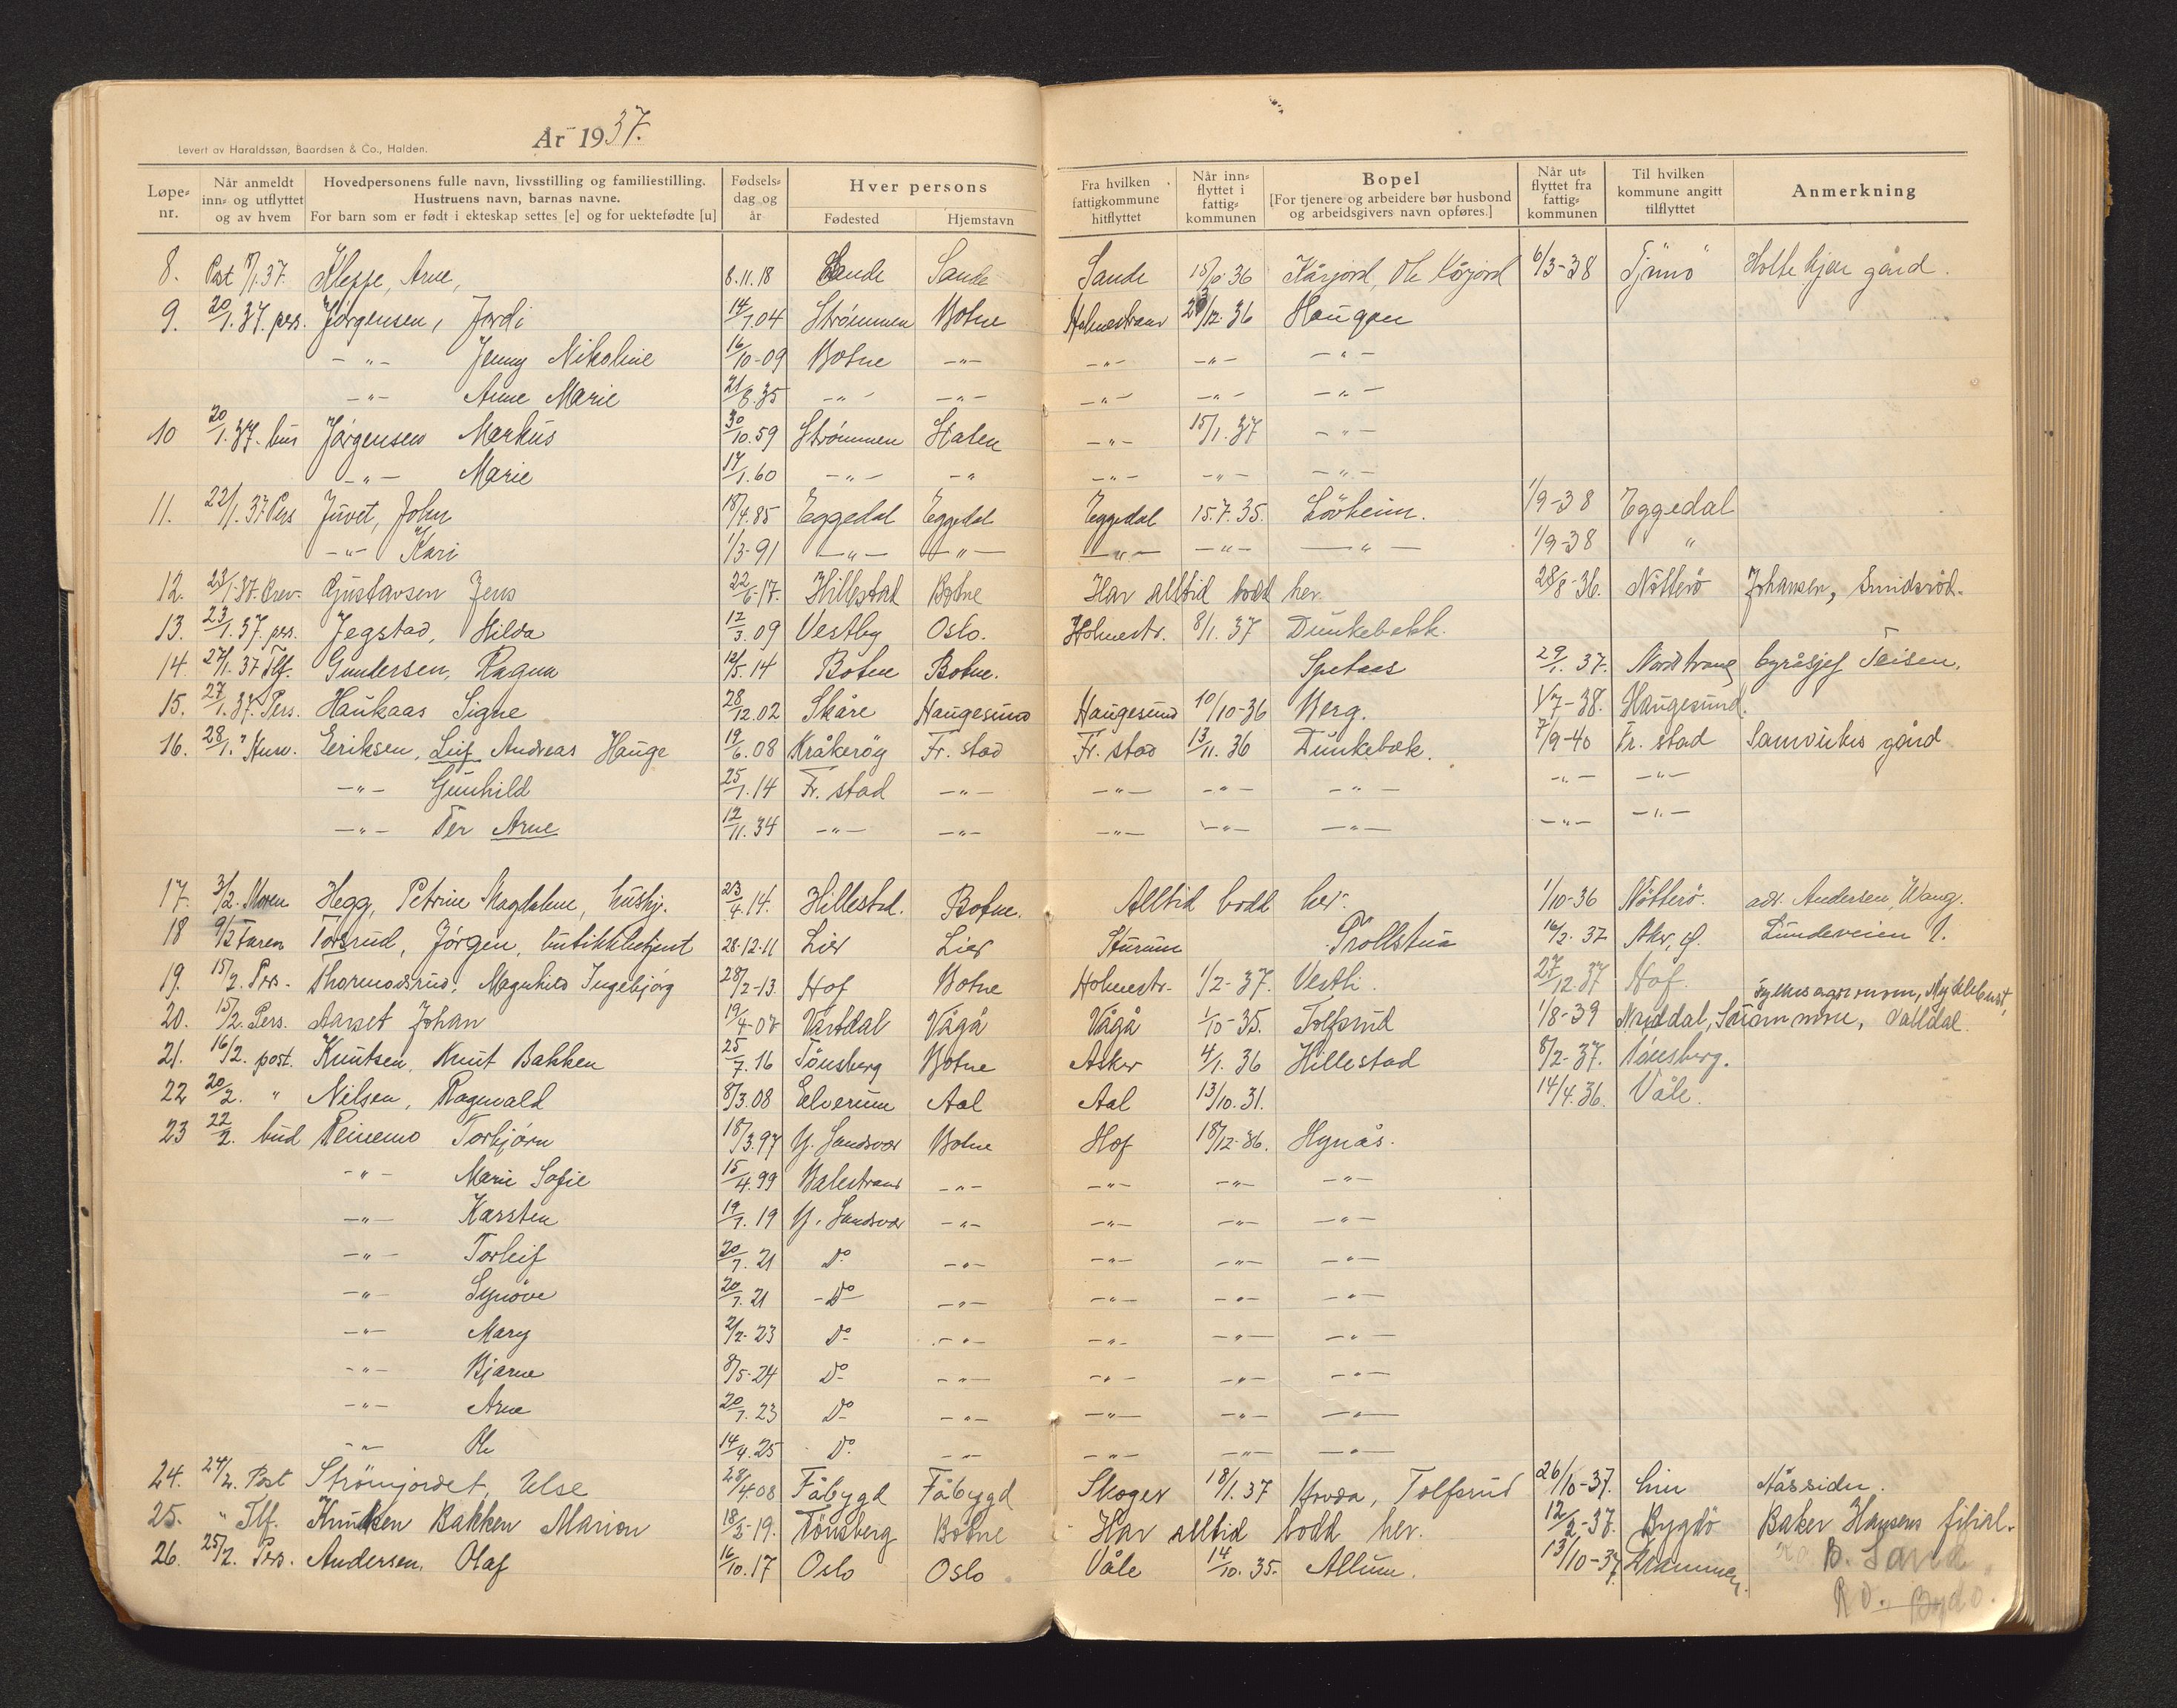 År 1937.
Levert av Haraldssøn, Baardsen & Co., Halden.
Løpe-nr. Når anmeldt inn- og utflyttet og av hvem Hovedpersonens fulle navn, livsstilling og familiestilling. Hustruens navn, barnas navne. For barn som er født i ekteskap settes [e] og for uektefødte [u] Fødsels-dag og år Hver persons Fødested Hjemstavn Fra hvilken fattigkommune hitflyttet Når inn-flyttet i fattig-kommunen Bopel [For tjenere og arbeidere bør husbond og arbeidsgivers navn opføres.] Når ut-flyttet fra fattig-kommunen Til hvilken kommune angitt tilflyttet Anmerkning
8. Post 18/1.37. Kleppe, Arne, 8.11.18 Sande Sande Sande 15/10 36 Kårjord, Ole Kårjord 6/3-38 Tjømö gård.
9. 20/1.37. pers. Jörgensen, Jordi 14/1.04 Strømmen Botne Holmestrand 29/12.36 Haugan
-"- Jenny Nikoline 16/10-09 Botne -"- -"- -"- -"-
-"- Anne Marie 21/8.35 -"- -"- -"- -"- -"-
10 20/1.37. hus Jörgensen Markus 30/10.59 Strømmen Halen -"- 15/1.37 -"-
-"- Marie 17/1.60 -"- -"- -"- -"- -"-
11. 22/1.37 Pers Juvet, John 18/4.85 Eggedal Eggedal Eggedal 15.7.35. Lövheim. 1/9-38 Eggedal
-"- Kari 1/3-91 -"- -"- -"- -"- -"- 1/9-38 "
12. 23/1.37. brev. Gustavsen Jens 22/6.17. Hillestad Botne Har alltid bodd her 28/8-36. Nötterö Johansen, Smidsröd.
13. 23/1.37. pers. Jegstad, Hilda 12/3.09 Vestby Oslo. Holmestr. 8/1.37 Dunkebekk.
14. 27/1.37 Tlf. Gundersen, Ragna 12/5.14 Botne Botne. Spetaas 29/1.37. Nordstrand byråsjef Teisen.
15. 27/1.37. Pers. Haukaas Signe 28/12.02 Skåre Haugesund Haugesund 10/10-36 Berg. 1/7-38. Haugesund.
16. 28/1." Husv. Eeriksen, Leif Andreas Hauge 19/6.08 Kråkerøy Fr. stad Fr. stad 13/11.36 Dunkebæk. 7/9-40 Fr. stad Samvirkes gård
-"- Gunhild 25/1.14 Fr. stad -"- -"- -"- -"- -"- -"-
-"- Per Arne 12/11.34 -"- -"- -"- -"- -"- -"- -"-
17. 3/2. Moren Hegg, Petrine Magdalene, hushj. 23/4.14. Hillestad. Botne. Alltid bodd her. 1/10-36 Nötterö. adr. Andersen, Wang.
18 9/2 Faren Torsrud, Jørgen, butikkbetjent 28-12-11 Lier Lier Trollstua 16/2.37 Lundeveien 1.
19. 15/2. Pers. Thormodsrud, Magnhild Ingebjörg 28/2-13. Hof Botne Holmestr. 1/2-37. Vestli. 27/12.37 Hof.
20. 15/2. Pers. Aarset Johan 19/4-07 Vartdal Vågå Vågå 1/10-35. Tolfsrud 1/8-39 Norddal, Sunnmøre, Valldal. fylkesagronom, Myklebust,
21. 16/2. post. Knutsen, Knut Bakken 25/7.16 Tönsberg Botne Asker 4/1.36 Hillestad 8/2-37. Tönsberg.
22 20/2. " Nilsen, Ragnvald 8/3.08 Elverum Aal Aal 13/10.31. 14/4.36. Våle.
23 22/2. bud Teinemo Torbjörn 18/3.97 Y. Sandsvær Botne Hof 18/12-36. Hynås.
-"- Marie Sofie 15/4.99 Balestrand -"- -"- -"- -"-
-"- Karsten 19/1.19 Y. Sandsvær -"- -"- -"- -"-
-"- Torleif 20/7.21 Do -"- -"- -"- -"-
-"- Synöve 20/7.21 Do -"- -"- -"- -"-
-"- Mary 2/2-23 Do -"- -"- -"- -"-
-"- Bjarne 8/5-24 Do -"- -"- -"- -"-
-"- Arne 20/7.23 Do -"- -"- -"- -"-
-"- Ole 14/9.25 Do -"- -"- -"- -"-
24. 24/2. Post Strömjordet, Else 28/4.08 Fåbygd Fåbygd Skoger 18/1.37 Hovda, Tolfsrud 26/10-37. Lier Åssiden.
25. " Tlf. Knutsen Bakken Marion 18/3-19. Tönsberg Botne Har alltid bodd her. 12/2-37. Bygdö Baker Hansens filial.
26. 25/2. Pers. Andersen, Olaf 16/10.17 Oslo Oslo Våle 14/10.35. Allum. 13/10-37 Drammen. B. Sand